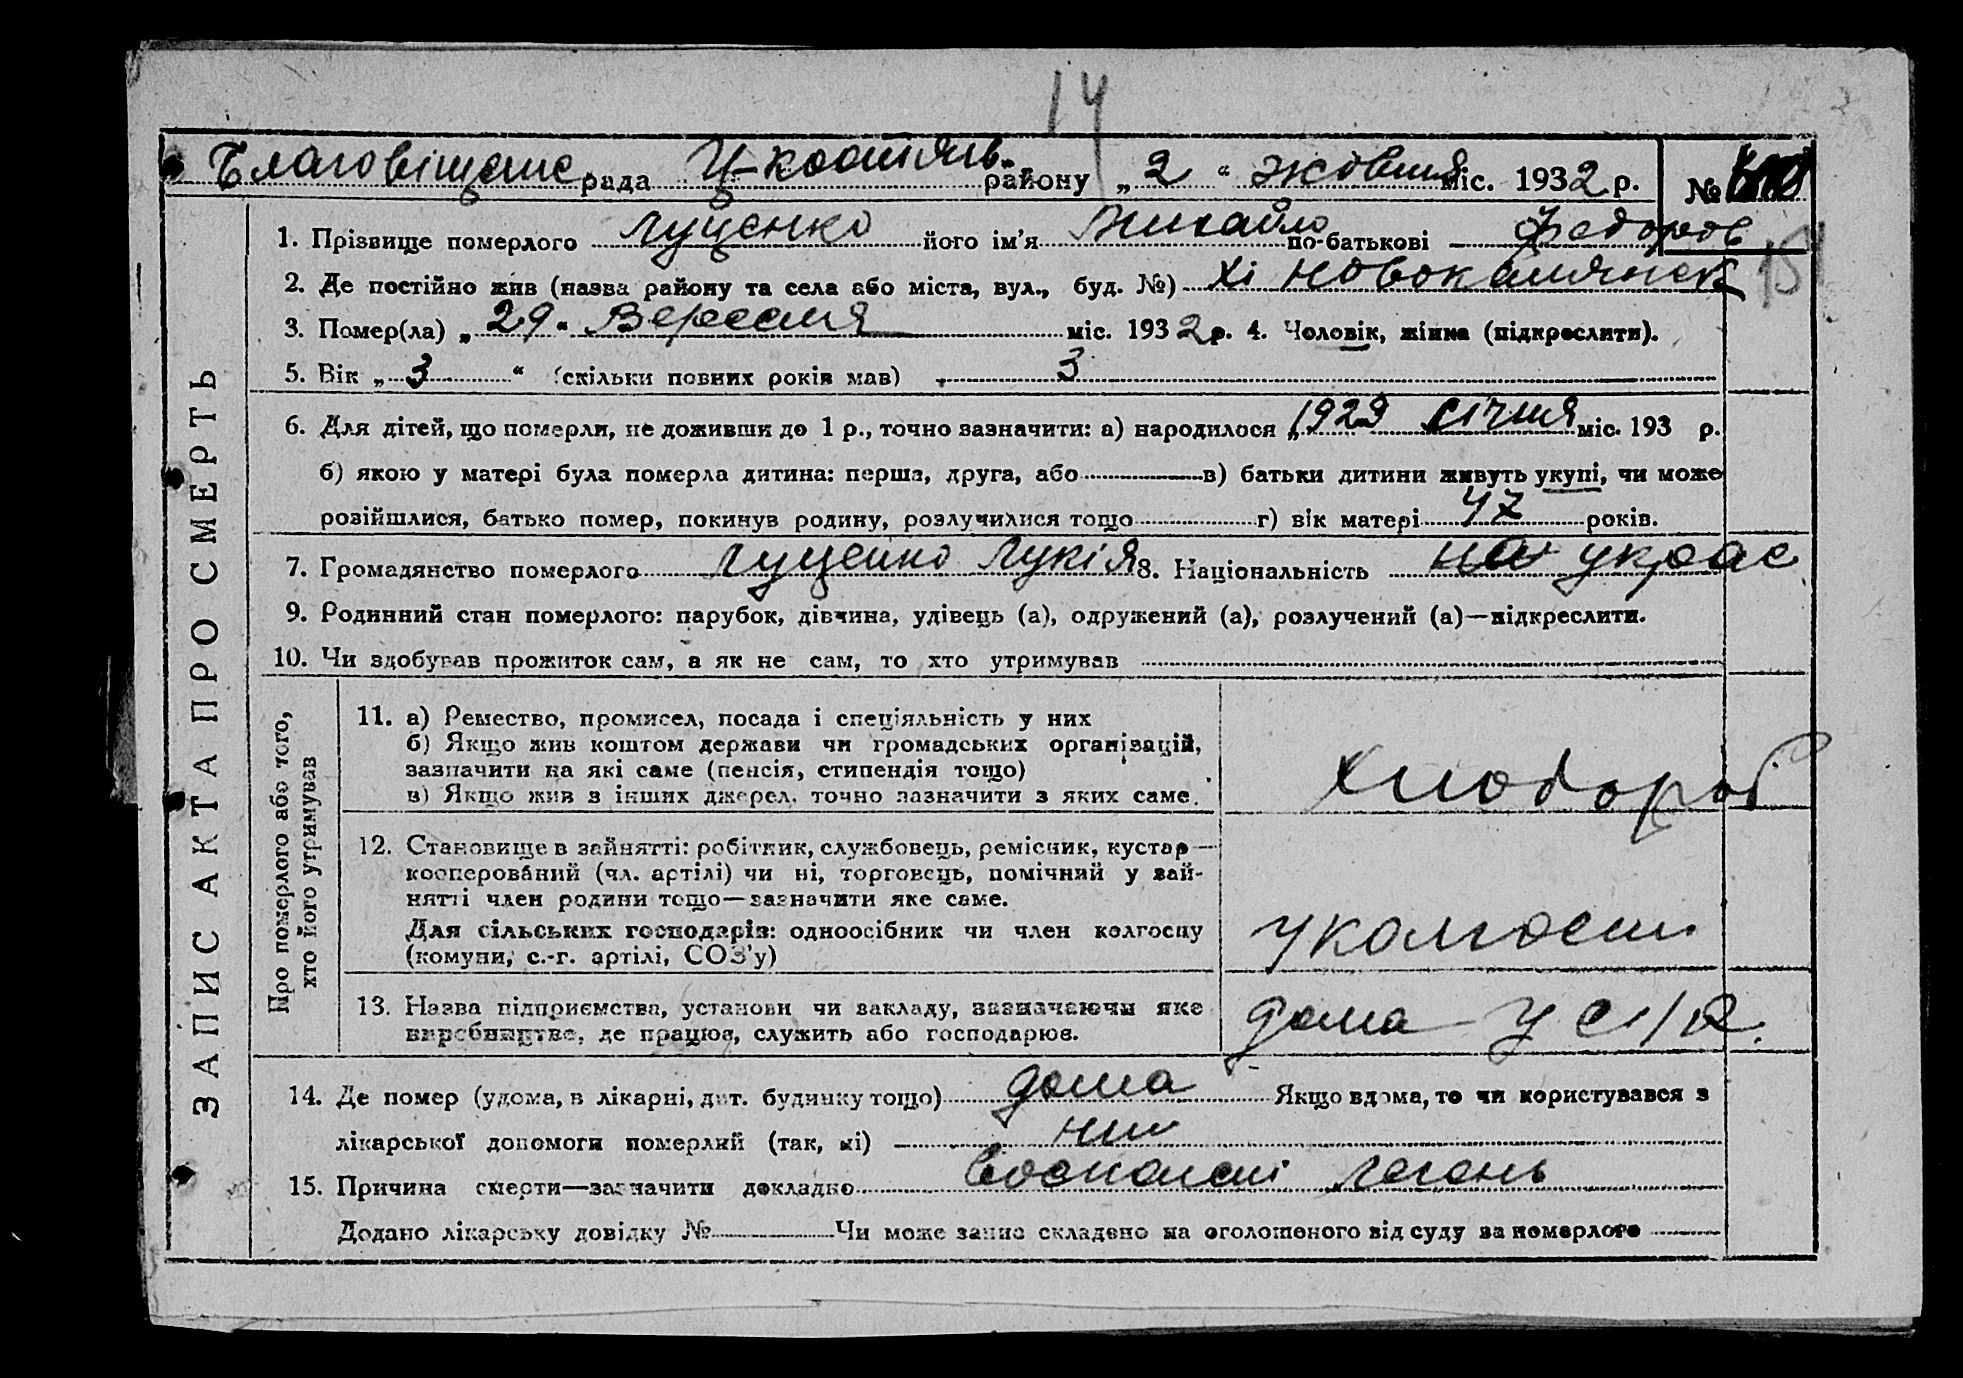 14
Благовіщенс рада Ц-Костянв. району „ 2 “ жовтня міс. 1932 р. №
151
ЗАПИС АКТА ПРО СМЕРТЬ
1. Прізвище померлого Луценко його ім’я Михайло по-батькові Федоров
2. Де постійно жив (назва району та села або міста, вул., буд. №) Хі Новокамянск
3. Помер(ла) „ 29 “ Вересня міс. 1932 р. 4. Чоловік, жінка (підкреслити).
5. Вік „ 3 “ (скільки повних років мав) 3
6. Для дітей, що померли, не доживши до 1 р., точно зазначити: а) народилося „ 1929 січня міс. 193 р.
б) якою у матері була померла дитина: перша, друга, або в) батьки дитини живуть укупі, чи може
розійшлися, батько помер, покинув родину, розлучилися тощо г) вік матері 47 років.
7. Громадянство померлого Луценко Лукія 8. Національність украє
9. Родинний стан померлого: парубок, дівчина, удівець (а), одружений (а), розлучений (а)—підкреслити.
10. Чи здобував прожиток сам, а як не сам, то хто утримував
Про померлого або того,
хто його утримував
11. а) Ремество, промисел, посада і спеціяльність у них
б) Якщо жив коштом держави чи громадських організацій,
зазначити на які саме (пенсія, стипендія тощо)
в) Якщо жив з інших джерел, точно зазначити з яких саме.
Хлобороб
12. Становище в зайнятті: робітник, службовець, ремісник, кустар—
кооперований (чл. артілі) чи ні, торговець, помічний у зай-
нятті член родини тощо—зазначити яке саме.
Для сільських господарів: одноосібник чи член колгоспу
(комуни, с.-г. артілі, СОЗ’у)
у колгоспі
13. Назва підприємства, установи чи закладу, зазначаючи яке
виробництво, де працює, служить або господарює.
дома у с/г.
14. Де помер (удома, в лікарні, дит. будинку тощо) дома Якщо вдома, то чи користувався з
лікарської допомоги померлий (так, ні) ни
15. Причина смерти—зазначити докладно воспалєні легень
Додано лікарську довідку № Чи може запис складено на оголошеного від суду за померлого